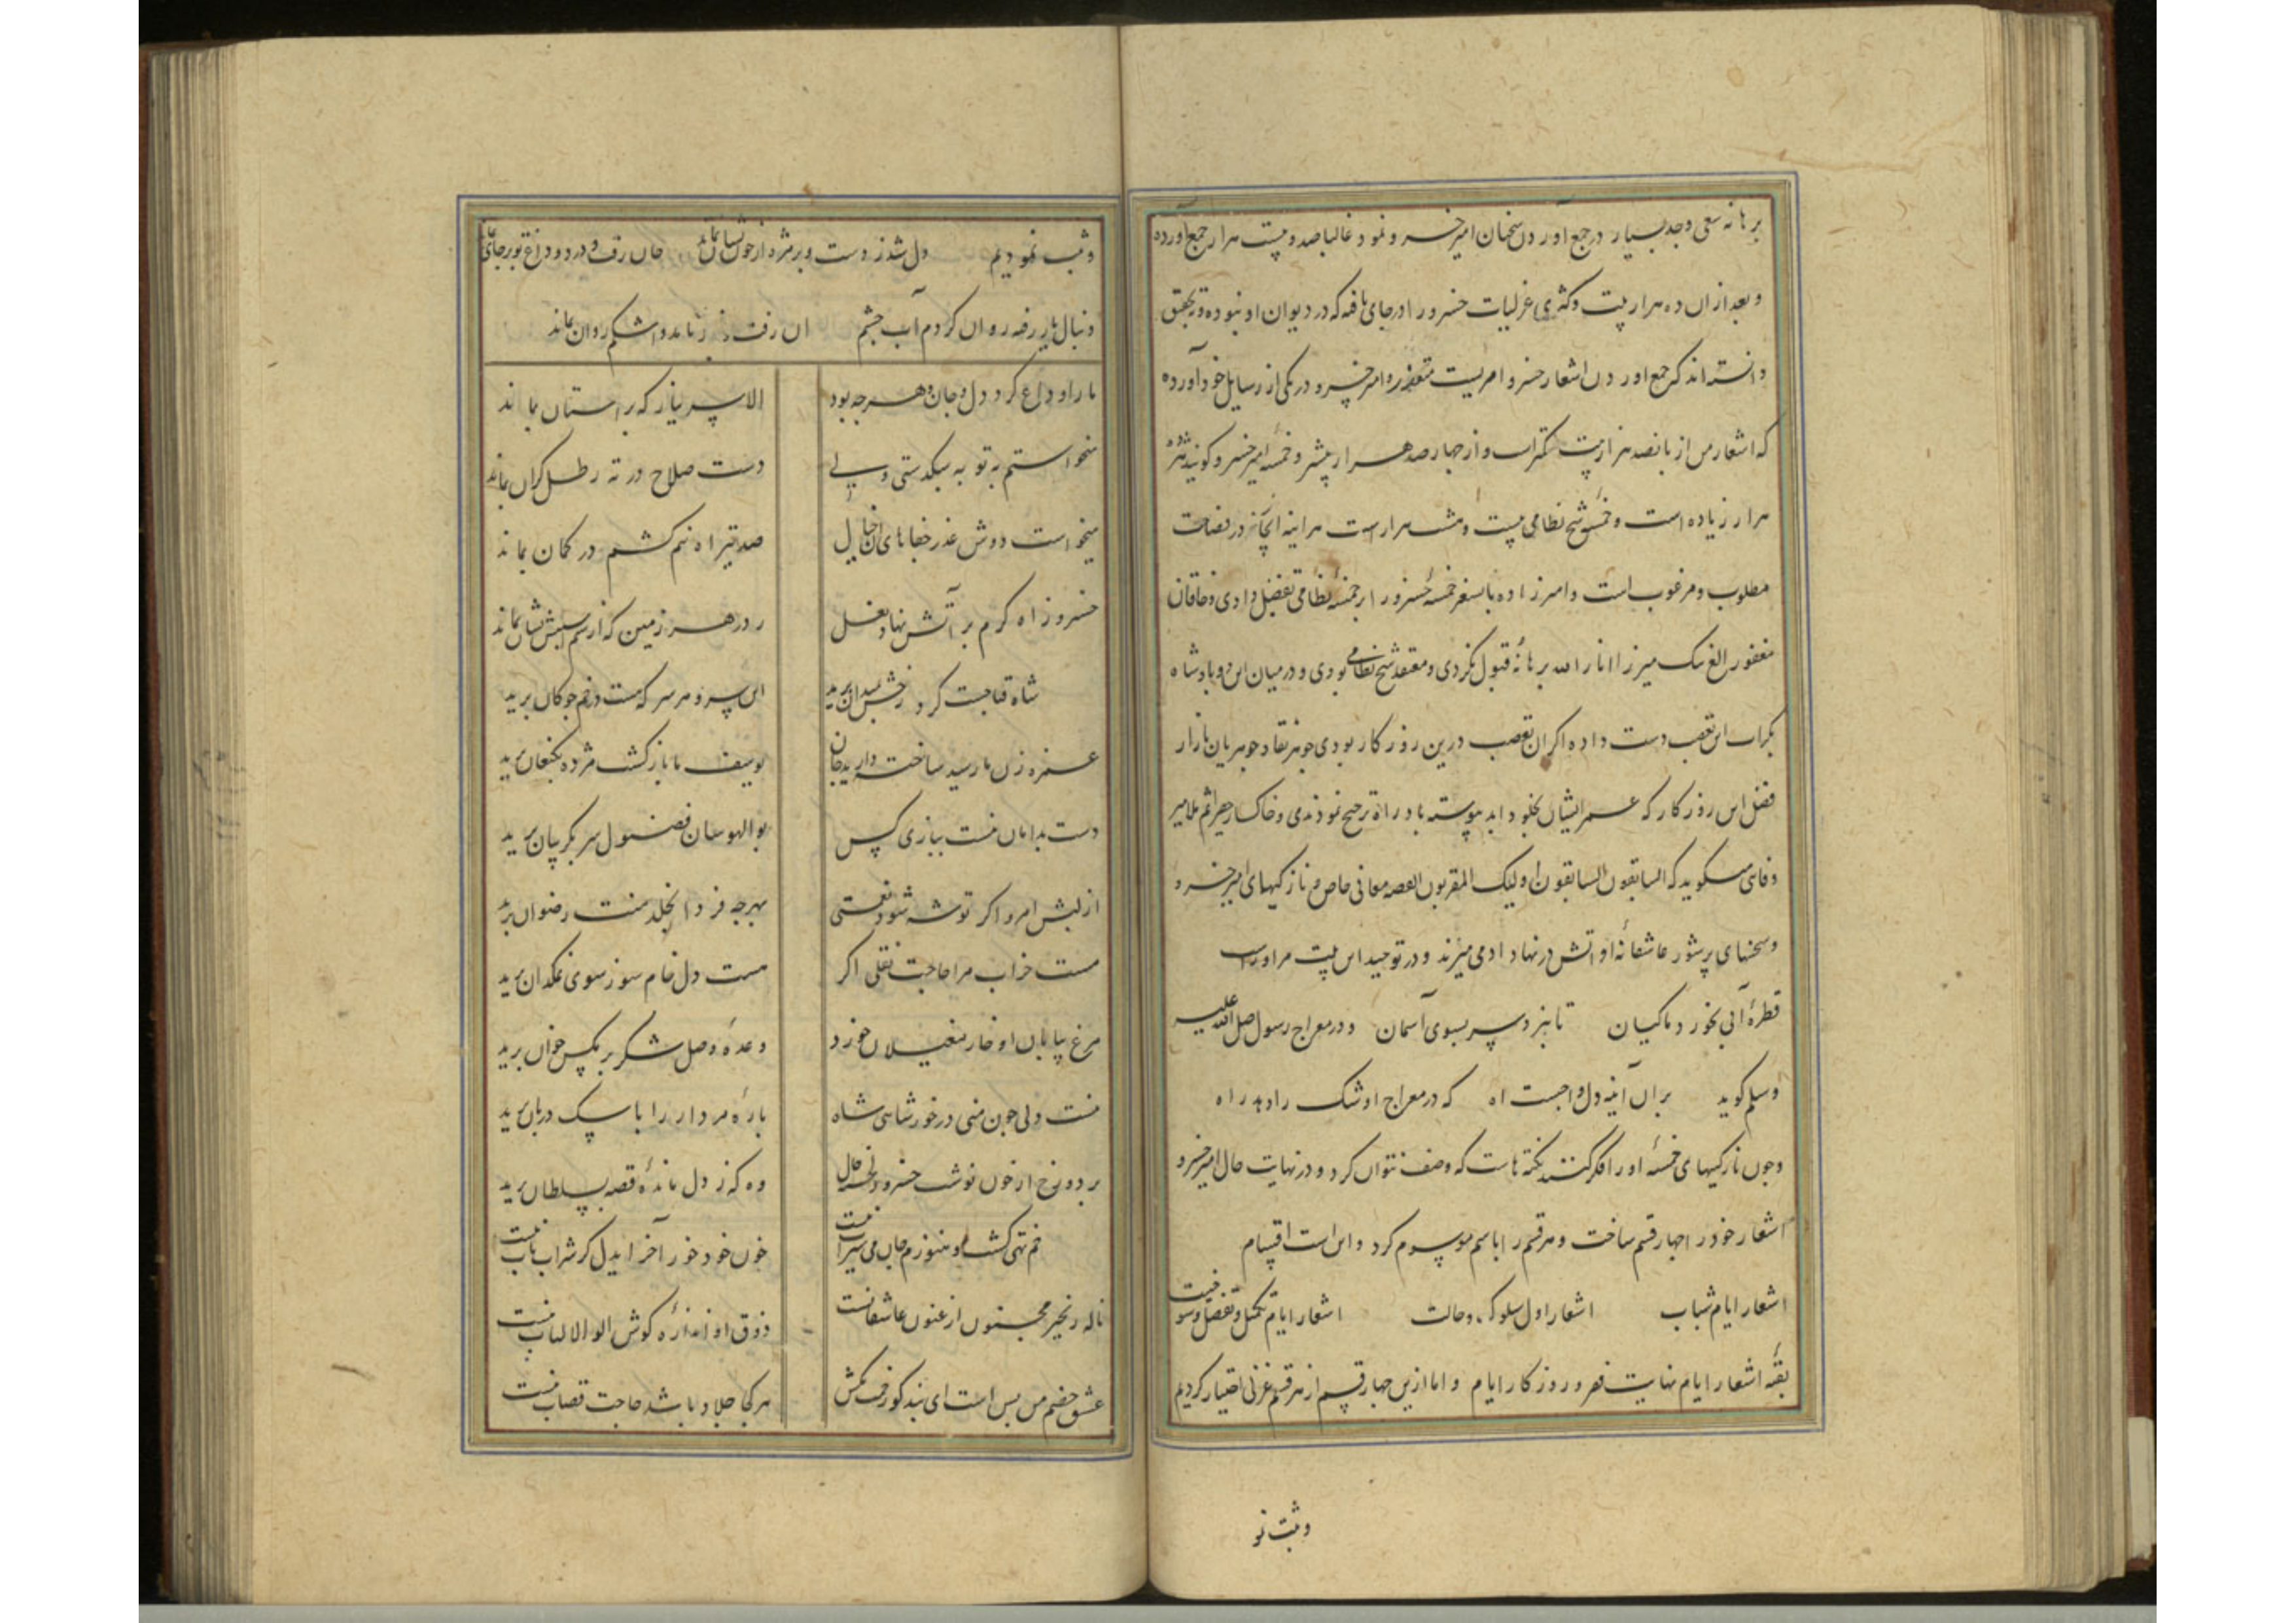 برهانه سعی و جهد بسیار در جمع آوردن سخنان امیر خسرو نمود غالبا صد و بیست هزار جمع آورده
و بعد از ان ده هزار بیت و کثری غزلیات خسرو را در جای یافته که در دیوان او نبوده و تحقیق
دانسته‌اند که جمع اوردن اشعار خسرو امریست متعذر و امیر خسرو در یکی از رسایل خود آورده
که اشعار من از پانصد هزار بیت کمتر است و از چهارصد هزار بیشتر و خمسه امیر خسرو گویند هژده
هزار زیاده است و خمسه شیخ نظامی بیست و هشت هزار است هراینه ایجاز در فصاحت
مطلوب و مرغوب است و امیرزاده بایسنغر خمسه خسرو را بر خمسه نظامی تفضیل دادی و خاقان
مغفور الغ بیک میرزا انار الله برهانه قبول نکردی و معتقد شیخ نظامی بودی و در میان این دو پادشاه
بکرات این تعصب دست داده اگر ان تعصب درین روزکار بودی جوهر نقاد جوهریان بازار
فضل این روزکار که عمر ایشان بخلود ابد پیوسته باد راه ترجیح نمودندی
السابقون السابقون اولیک المقربون القصه معانی خاص و نازکیهای امیر خسرو
و سخنهای پرشور عاشقانه او اتش در نهاد ادمی میزند و در توحید این بیت مر اوراست
قطره آبی نخورد ماکیان تا نبرد سر بسوی آسمان و در معراج رسول صلی الله علیه
و سلم گوید بران اینه دل واجبست اه که در معراج او شک را دهد راه
و چون نازکیهای خمسه او را فکر کنند نکته‌هاست که وصف نتوان کرد و در نهایت حال امیر خسرو
اشعار خود را چهار قسم ساخت و هر قسم را باسم موسوم کرد و این است اقسام
اشعار ایام شباب اشعار اول سلوک و حالت اشعار ایام تکمیل و تفضیل
بقیه اشعار ایام نهایت فقر و روزکار ایام و اما ازین چهار قسم از هر قسم غزلی اختیار کردیم
و ثبت نمو
و ثبت نمودیم دل شد ز دست و بر مژه از خون نشان بماند جان رفت و درد و داغ تو بر جای
دنبال یار رفته روان کردم آب چشم ان رفت و اشکم روان بماند
ما را وداع کرد دل و جان و هرچه بود الا سر نیاز که بر استان بماند
میخواستم به تو به سبکدستی ولی دست صلاح در ته رطل گران بماند
میخواست دوش عذر جفاهای ان خیال صد تیر اه نیم کشم در کمان بماند
خسرو ز اه گرم بر آتش نهاد نعل در هر زمین که از سم اسبش نشان بماند
شاه قبا چست کرد رخش بمیدان برید این سر و هر سر که هست در خم چوکان برید
غمزه زن ما رسید ساخته دارید جان یوسف ما باز کشت مژده بکنعان برید
دست بدامان نیست ببازی کس بوالهوسان فضول سر بگریبان برید
از لبش امروز اکر توشه شود نعمتی بهر چه فردا بخلد منت رضوان برید
مست خراب مرا حاجت نقلی اکر هست دل خام سوز سوی نمکدان برید
مرغ بیابان او خار مغیلان خورد وعده وصل شکر بر مکس خوان برید
نیست ولی چون منی در خور شاهی شاه باره مردار را با سگ دربان برید
بر دو رخ از خون نوشت خسرو وه که ز دل مانده قصه بسلطان برید
خم تهی گشت و هنوزم جان می سیراب نیست خون خود خور آخر ای دل کر شراب ناب نیست
ناله زنجیر مجنون ارغنون عاشقانست ذوق او اندازه کوش اولوالالباب نیست
عشق خصم من بس است ای بند کو رخت کش هر کجا جلاد باشد حاجت قصاب نیست